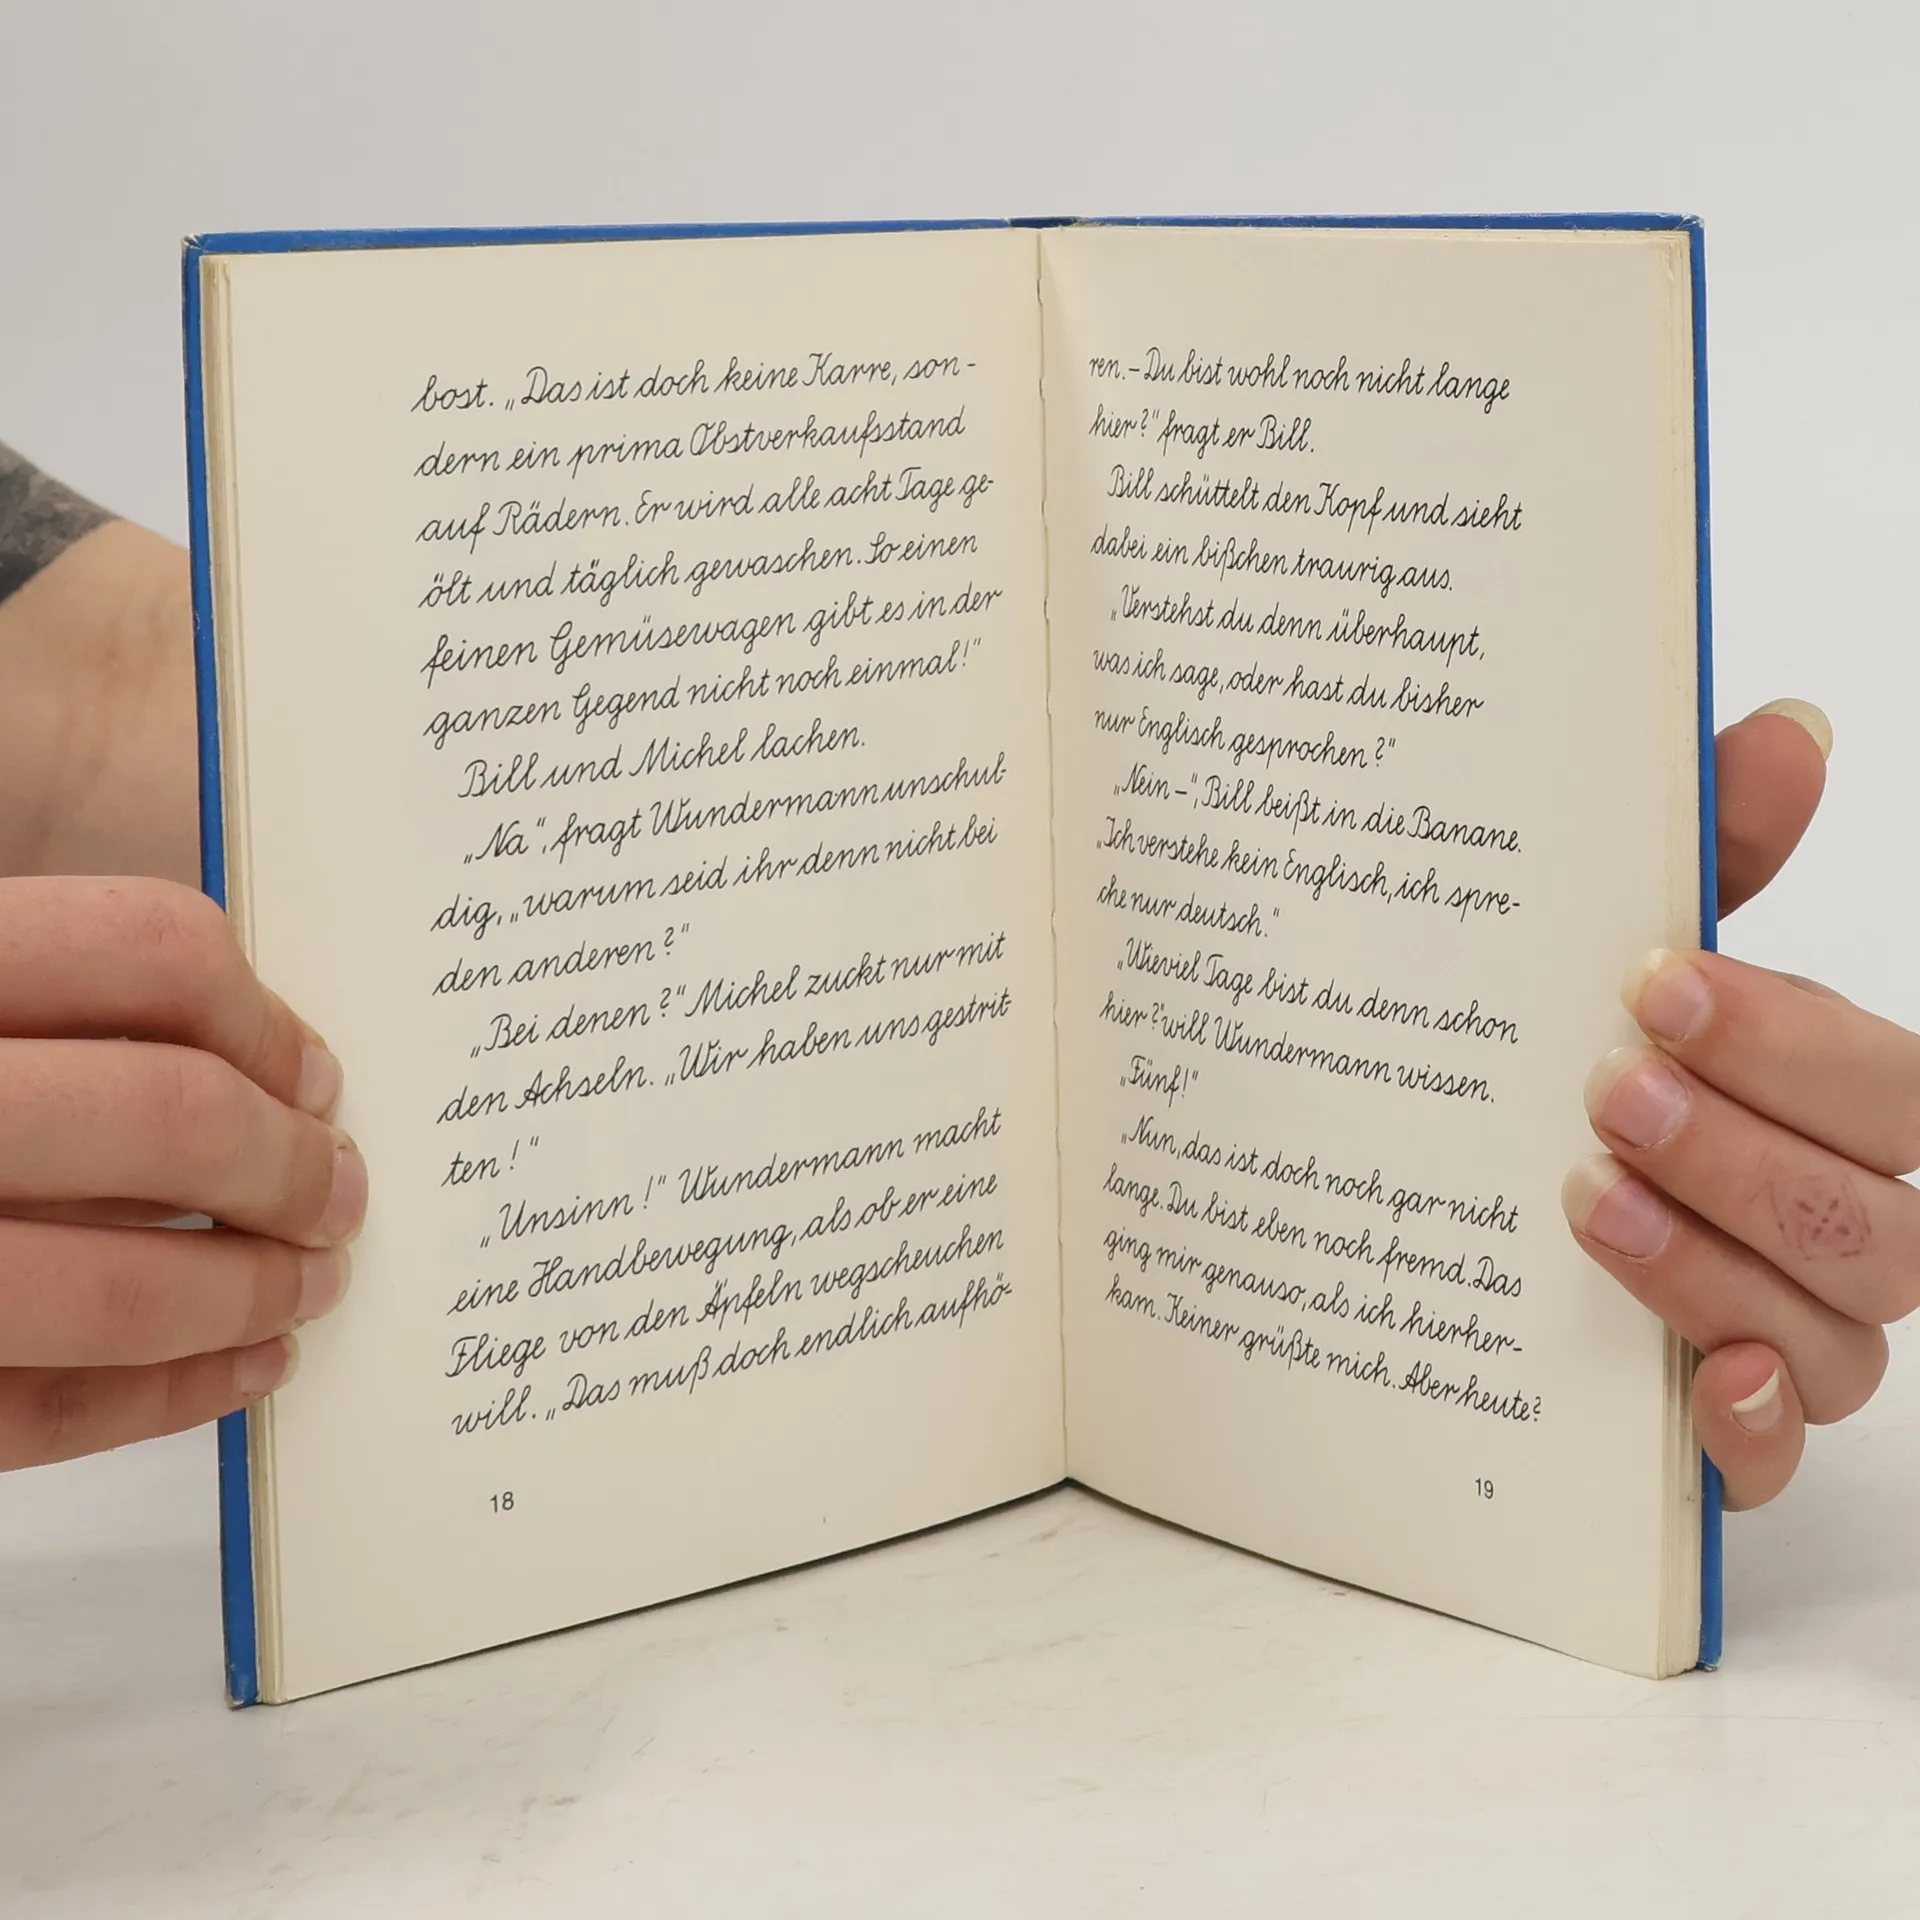 bost. „Das ist doch keine Karre, son-
dern ein prima Obstverkaufsstand
auf Rädern. Er wird alle acht Tage ge-
ölt und täglich gewaschen. So einen
feinen Gemüsewagen gibt es in der
ganzen Gegend nicht noch einmal!“
Bill und Michel lachen.
„Na“, fragt Wundermann unschul-
dig, „warum seid ihr denn nicht bei
den anderen?“
„Bei denen?“ Michel zuckt nur mit
den Achseln. „Wir haben uns gestrit-
ten!“
„Unsinn!“ Wundermann macht
eine Handbewegung, als ob er eine
Fliege von den Äpfeln wegscheuchen
will. „Das muß doch endlich aufhö-
18
ren. – Du bist wohl noch nicht lange
hier?“ fragt er Bill.
Bill schüttelt den Kopf und sieht
dabei ein bißchen traurig aus.
„Verstehst du denn überhaupt,
was ich sage, oder hast du bisher
nur Englisch gesprochen?“
„Nein –“, Bill beißt in die Banane.
„Ich verstehe kein Englisch, ich spre-
che nur deutsch.“
„Wieviel Tage bist du denn schon
hier?“ will Wundermann wissen.
„Fünf!“
„Nun, das ist doch noch gar nicht
lange. Du bist eben noch fremd. Das
ging mir genauso, als ich hierher-
kam. Keiner grüßte mich. Aber heute?
19